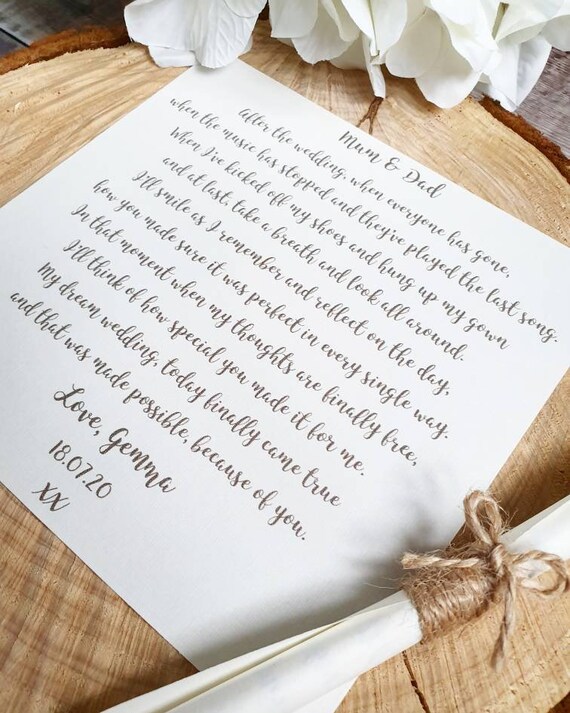 Mum & Dad
After the wedding, when everyone has gone,
when the music has stopped and they've played the last song.
When I've kicked off my shoes and hung up my gown
and at last, take a breath and look all around.
I'll smile as I remember and reflect on the day,
how you made sure it was perfect in every single way.
In that moment when my thoughts are finally free,
I'll think of how special you made it for me.
My dream wedding, today finally came true
and that was made possible, because of you.
Love, Gemma
18.07.20
XX